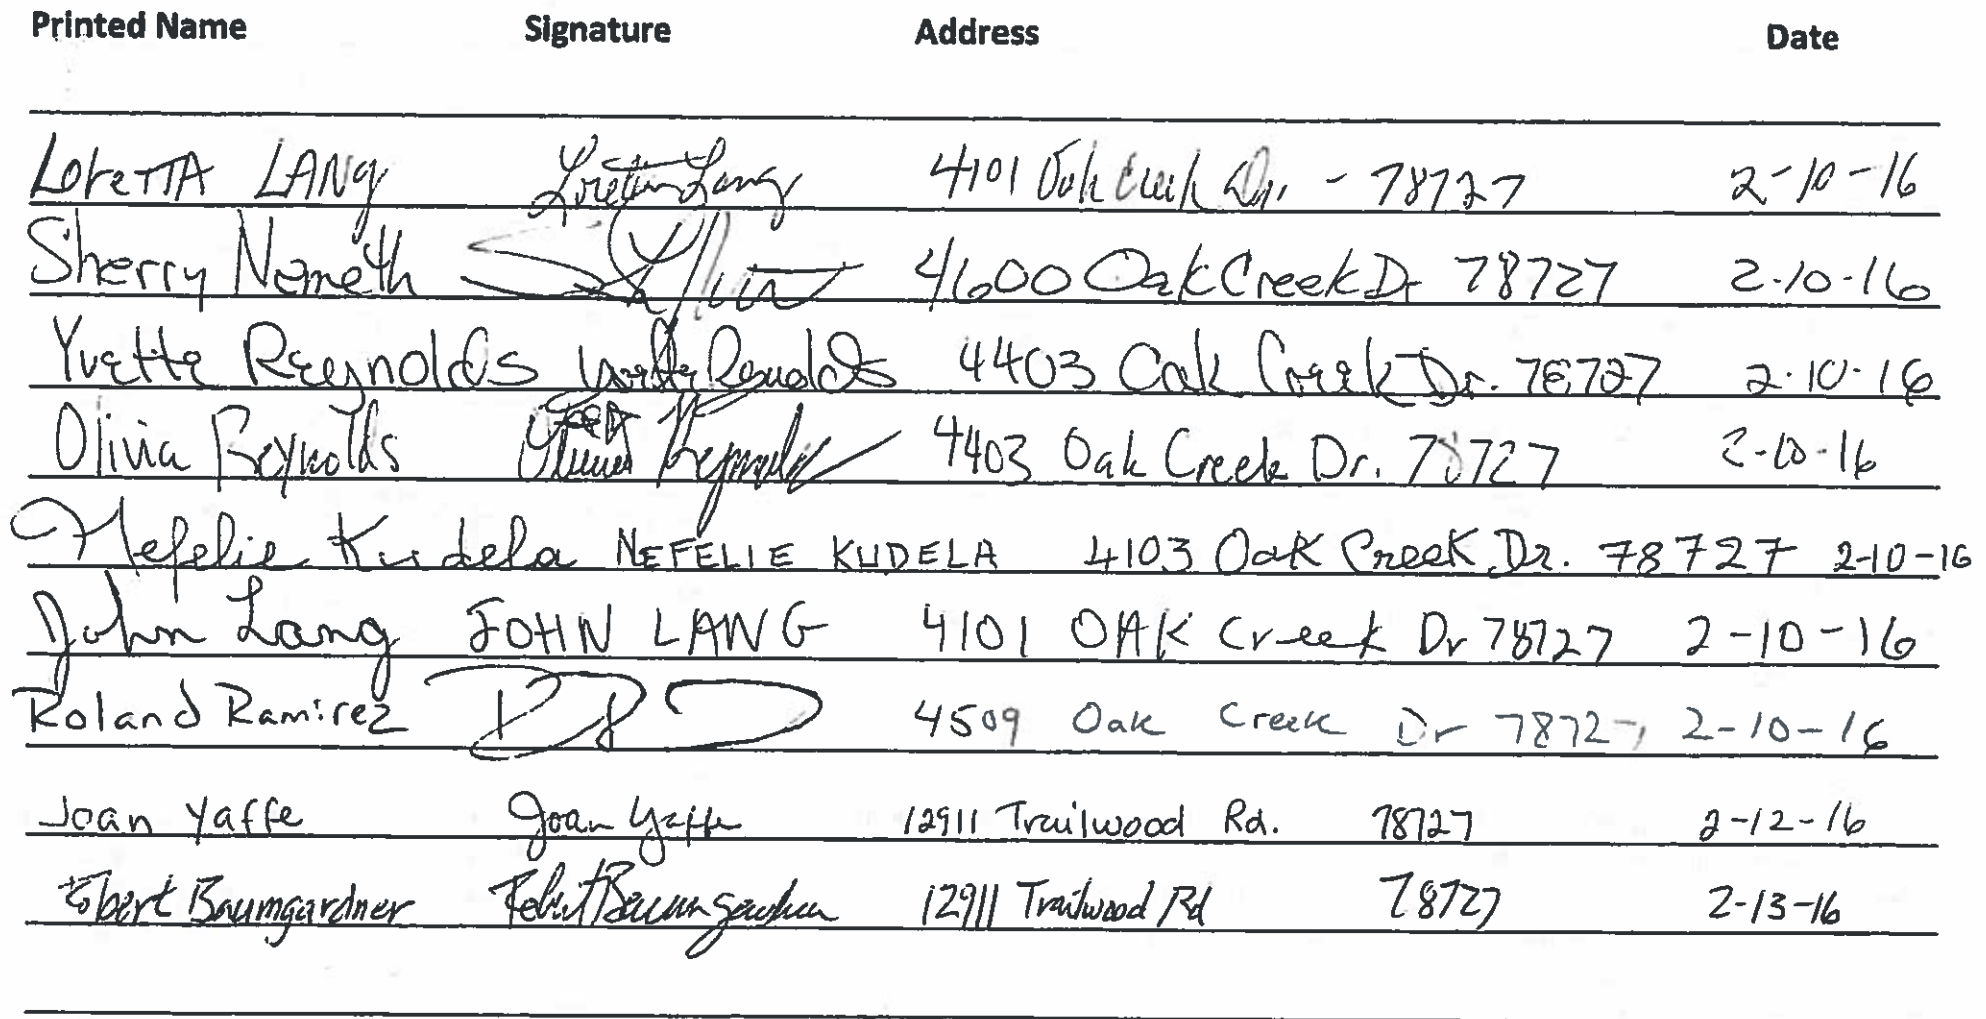 Printed Name Signature Address Date
Loretta LANg Loretta Lang 4101 Oak Creek Dr. - 78727 2-10-16
Sherry Nemeth 4600 Oak Creek Dr 78727 2-10-16
Yvette Reynolds Yvette Reynolds 4403 Oak Creek Dr. 78727 2-10-16
Olivia Reynolds Reynolds 4403 Oak Creek Dr. 78727 2-10-16
Nefelie Kudela NEFELIE KUDELA 4103 Oak Creek Dr. 78727 2-10-16
John Lang JOHN LANG 4101 OAK Creek Dr 78727 2-10-16
Roland Ramirez 4509 Oak Creek Dr 78727 2-10-16
Joan Yaffe Joan Yaffe 12911 Trailwood Rd. 78727 2-12-16
Robert Baumgardner Robert Baumgardner 12911 Trailwood Rd 78727 2-13-16